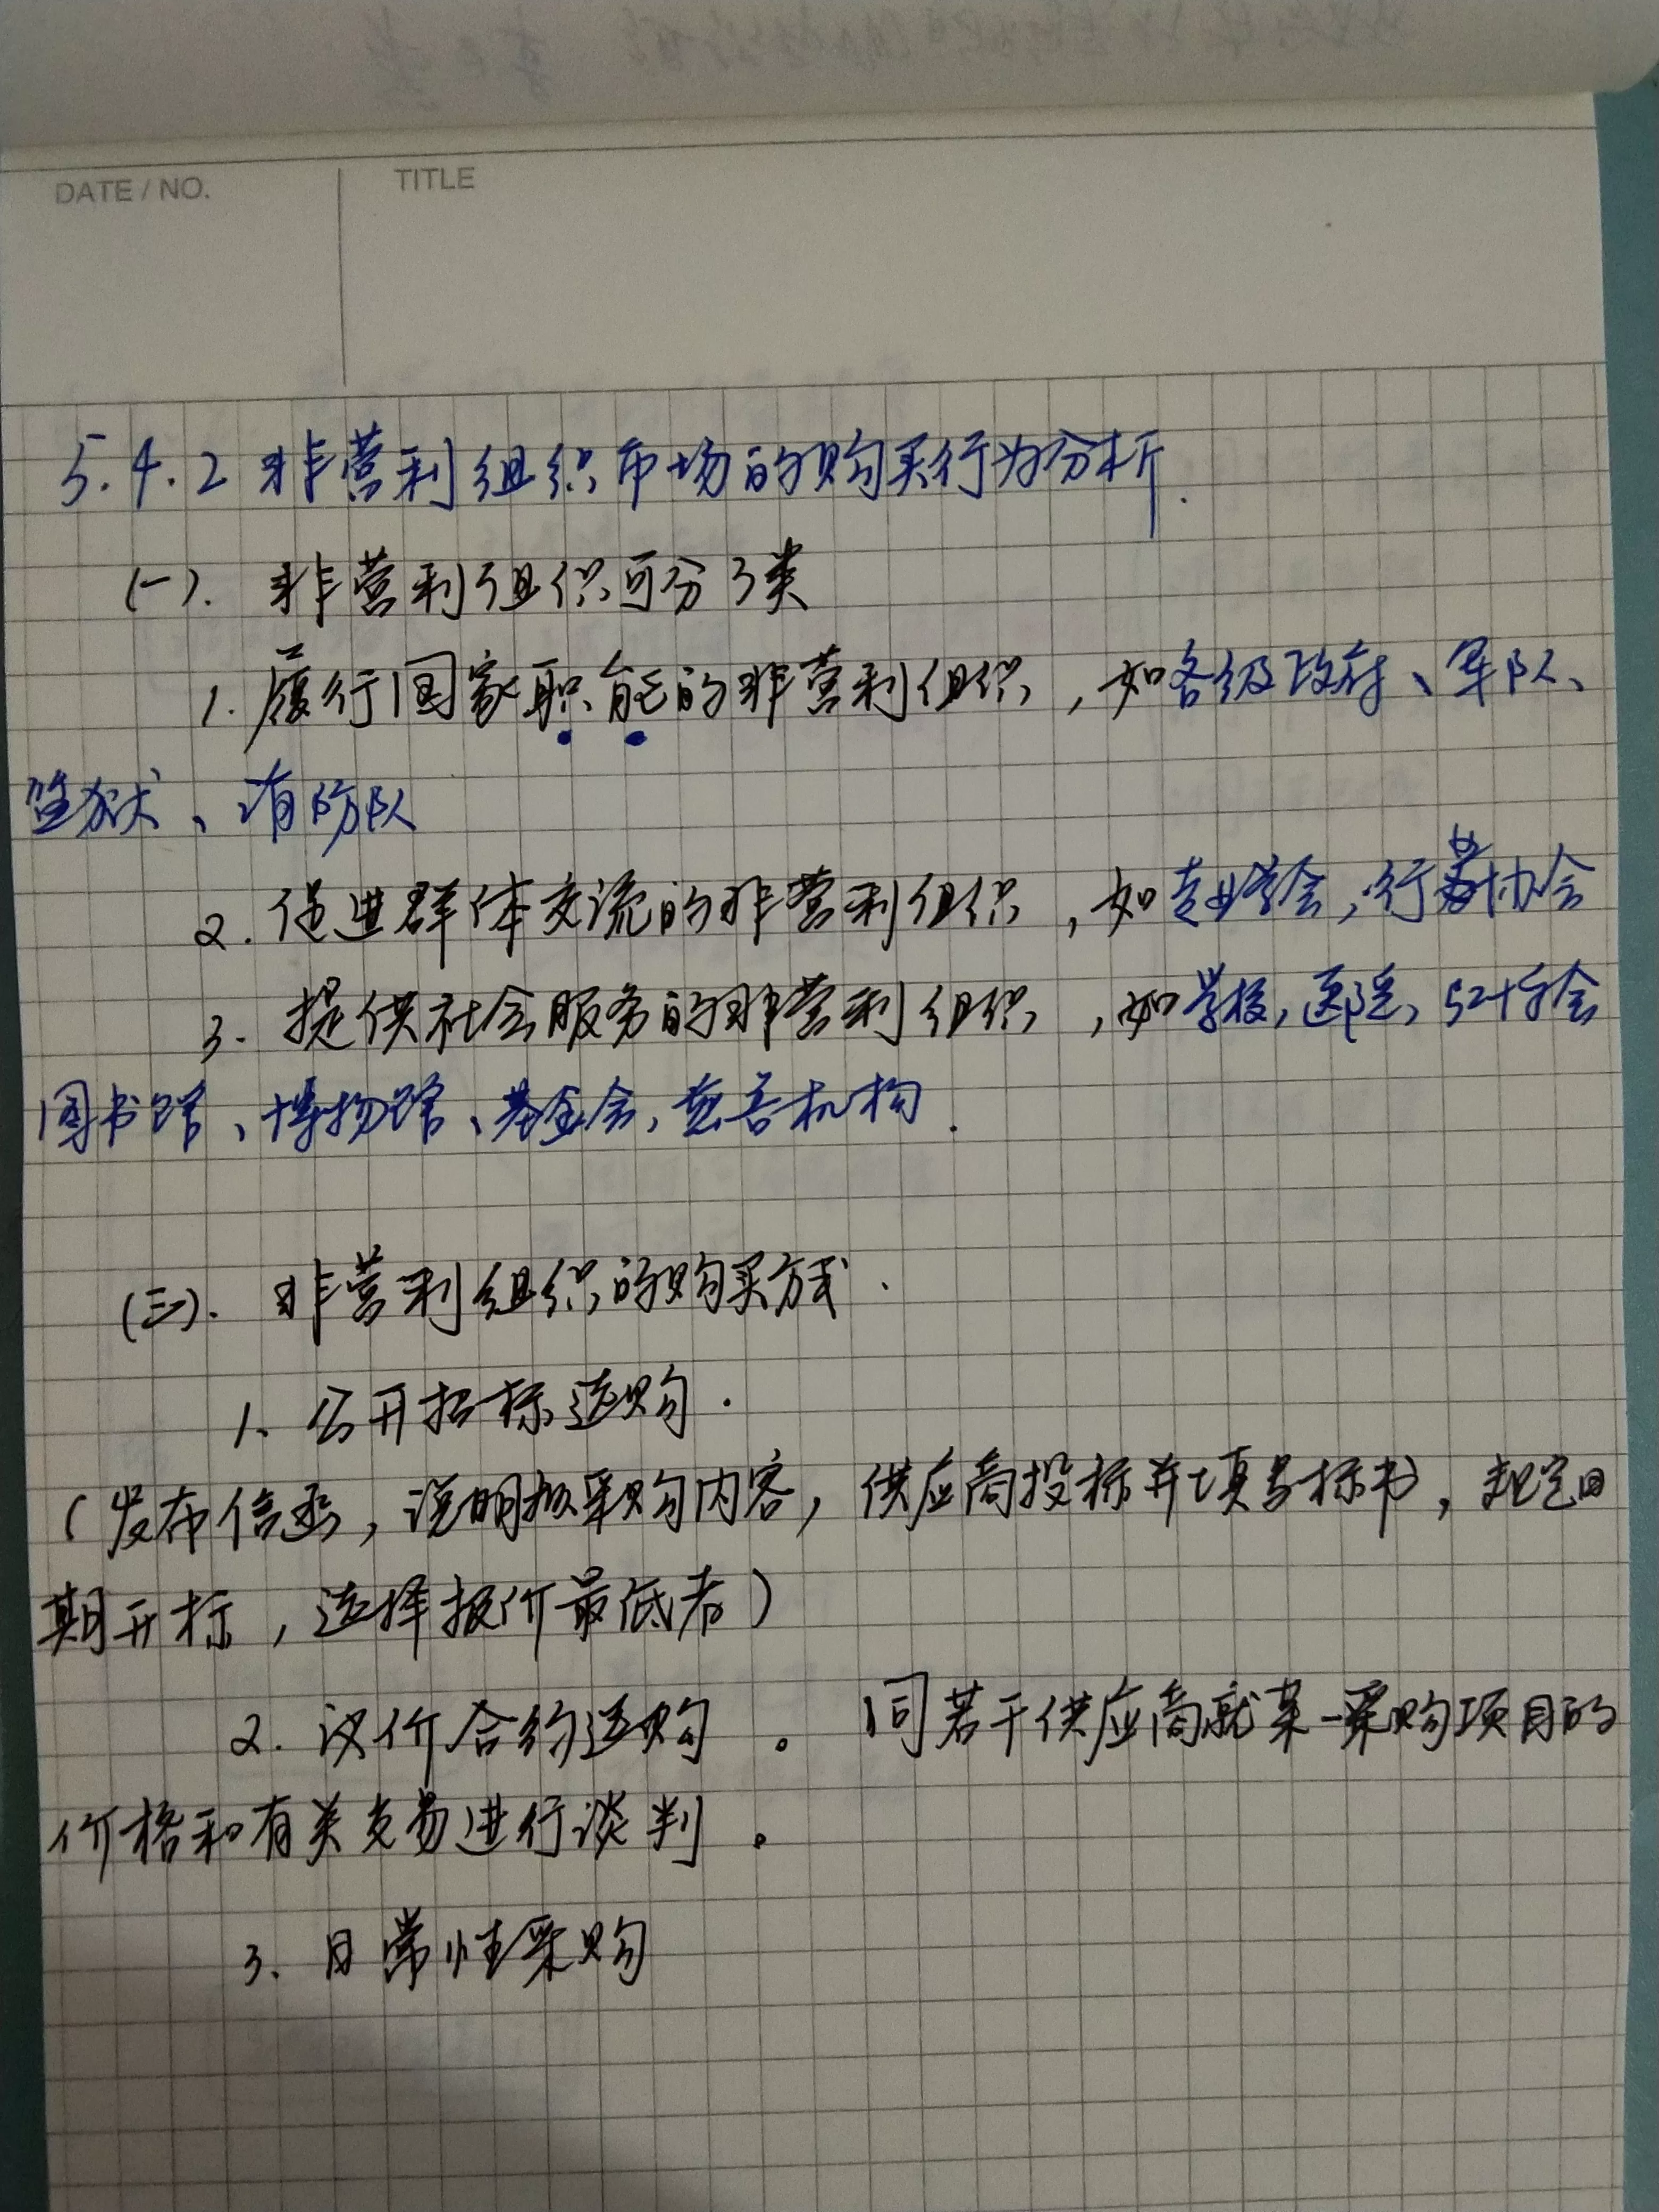 DATE / NO.
TITLE
5.4.2 非营利组织市场的购买行为分析.
(一). 非营利组织可分3类
1. 履行国家职能的非营利组织,如各级政府、军队、
监狱、消防队
2. 促进群体交流的非营利组织,如专业学会,行业协会
3. 提供社会服务的非营利组织,如学校,医院,红十字会
图书馆、博物馆、基金会,慈善机构.
(三). 非营利组织的购买方式.
1. 公开招标选购.
(发布信函,说明拟采购内容,供应商投标并填写标书,规定日
期开标,选择报价最低者)
2. 议价合约选购。同若干供应商就某一采购项目的
价格和有关交易进行谈判。
3. 日常性采购